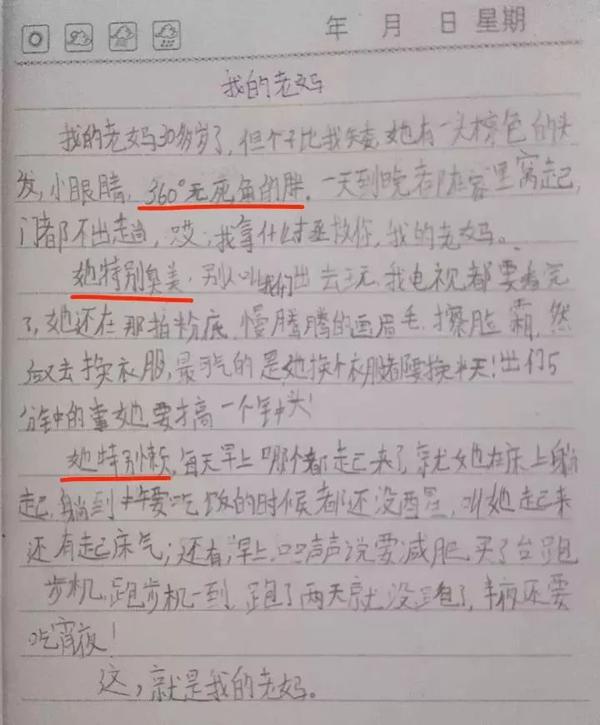 年 月 日 星期
我的老妈
我的老妈30多岁了，但个子比我矮，她有一头棕色的头
发，小眼睛，360°无死角的胖。一天到晚都在家里窝起，
门都不出走，哎，我拿什么拯救你，我的老妈。
她特别臭美，别人叫我们出去玩，我电视都要看完
了，她还在那拍粉底，慢腾腾的画眉毛，擦脸霜，然
后又去换衣服，最气的是她换个衣服都要换半天！出门5
分钟的事她要搞一个钟头！
她特别懒，每天早上哪个都起来了，就她在床上躺
起，躺到中午要吃饭的时候都还没洒里，叫她起来
还有起床气；还有，早上口口声声说要减肥，买了台跑
步机，跑步机一到，跑了两天就没跑了，半夜还要
吃宵夜！
这，就是我的老妈。